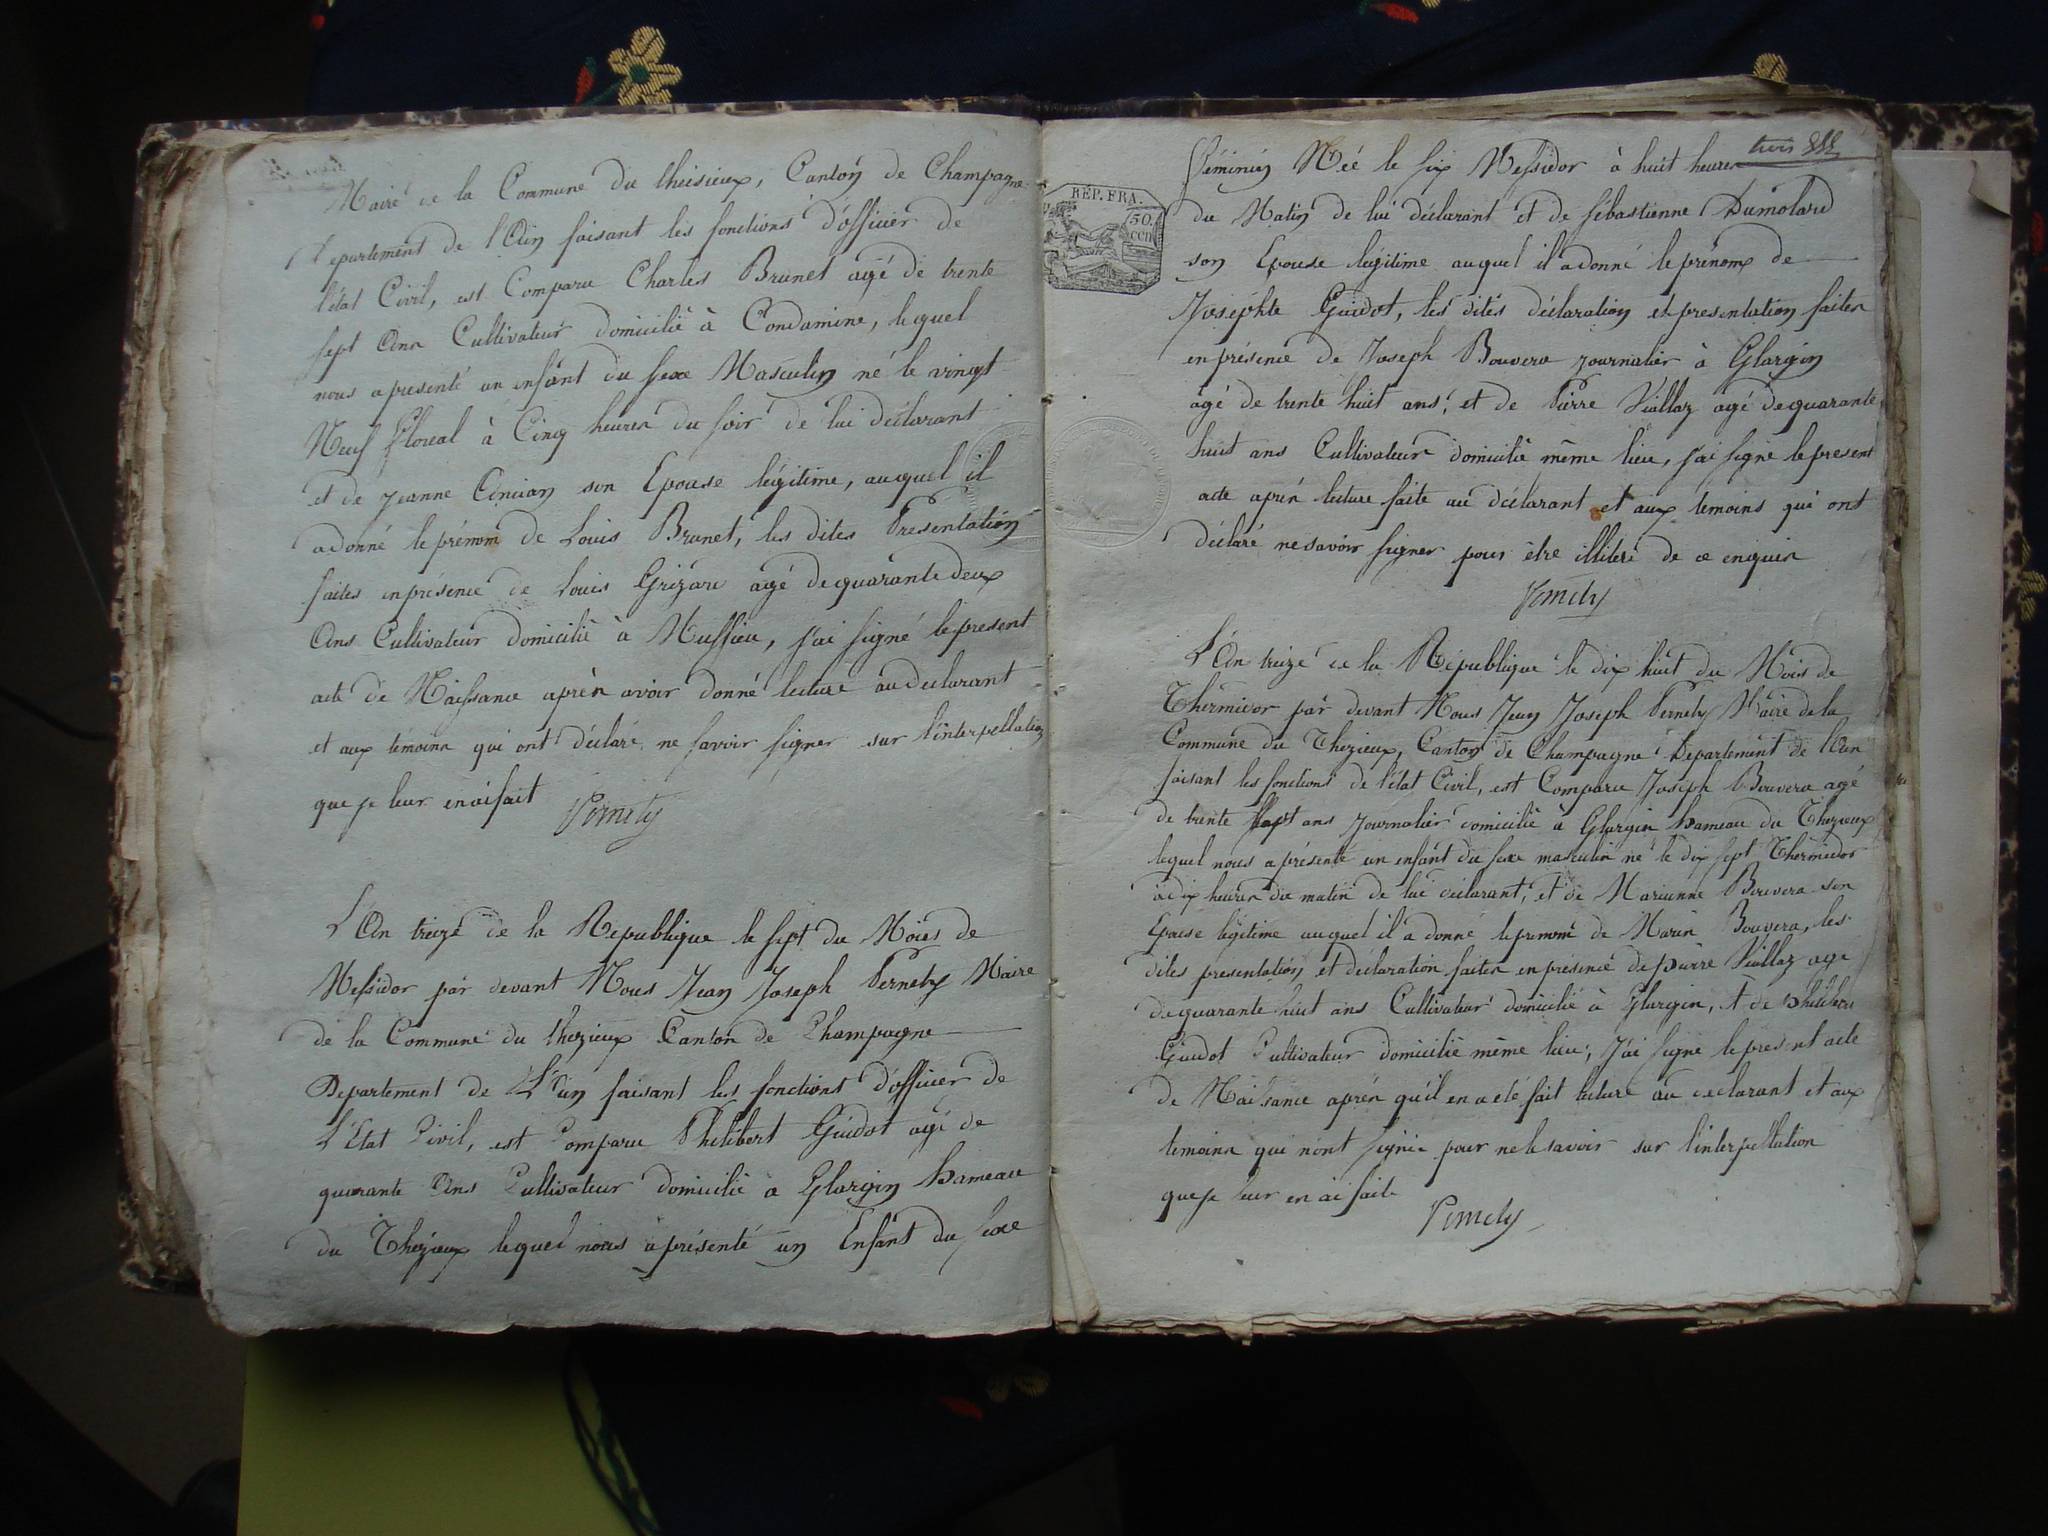 Maire de la Commune du theisieux, Canton de Champagne
Departement de l'Ain faisant les fonctions d'officier de
l'état Civil, est Comparu Charles Brunet agé de trente
sept Ans Cultivateur domicilié à Condamine, lequel
nous a presenté un enfant du sexe Masculin né le vingt
Neuf floreal à Cinq heures du soir de lui déclarant
et de jeanne son Epouse légitime, auquel il
a donné le prénom de Louis Brunet, les dites Présentation
faites en présence de Louis Grizard agé de quarante deux
Ans Cultivateur domicilié à Ruffieu, j'ai signé le present
acte de Naissance après avoir donné lecture au declarant
et aux témoins qui ont déclaré ne savoir signer sur l'interpellation
que je leur en ai fait Pernety
L'An treize de la Republique le sept du Mois de
Messidor par devant Nous Jean Joseph Pernety Maire
de la Commune du thezieux Canton de Champagne
Departement de L'ain faisant les fonctions d'officier de
L'Etat Civil, est Comparu Philibert Guidot agé de
quarante Ans Cultivateur domicilié a Glargin hameau
du Thezieux lequel nous a présenté un Enfant du sexe
trois
REP. FRA.
50.
CEN
féminin Née le six Messidor à huit heures
du Matin de lui déclarant et de sébastienne Dumolard
son Epouse légitime auquel il a donné le prénom de
Josephte Guidot, les dites déclaration et presentation faites
en présence de Joseph Bouvera journalier à Glargin
agé de trente huit ans, et de Pierre Viallaz agé de quarante
huit ans Cultivateur domicilié même lieu, j'ai signé le present
acte après lecture faite au déclarant et aux témoins qui ont
déclaré ne savoir signer pour être illiteré de ce enquis
Pernety
L'An treize de la République le dix huit du Mois de
Thermidor par devant Nous Jean Joseph Pernety Maire de la
Commune du Thezieux, Canton de Champagne Departement de l'Ain
faisant les fonctions de l'état Civil, est Comparu Joseph Bouvera agé
de trente sept ans Journalier domicilié à Glargin hameau du Thezieux
lequel nous a présenté un enfant du sexe masculin né le dix sept Thermidor
à dix heures du matin de lui déclarant, et de Marianne Bouvera son
Epouse légitime auquel il a donné le prenom de Marin Bouvera, les
dites presentation et déclaration faites en présence de pierre Viallaz agé
de quarante huit ans Cultivateur domicilié à Glargin, et de philibert
Guidot Cultivateur domicilié même lieu, J'ai signé le present acte
de Naissance après qu'il en a été fait lecture au declarant et aux
temoins qui n'ont signé pour ne le savoir sur l'interpellation
que je leur en ai faite
Pernety